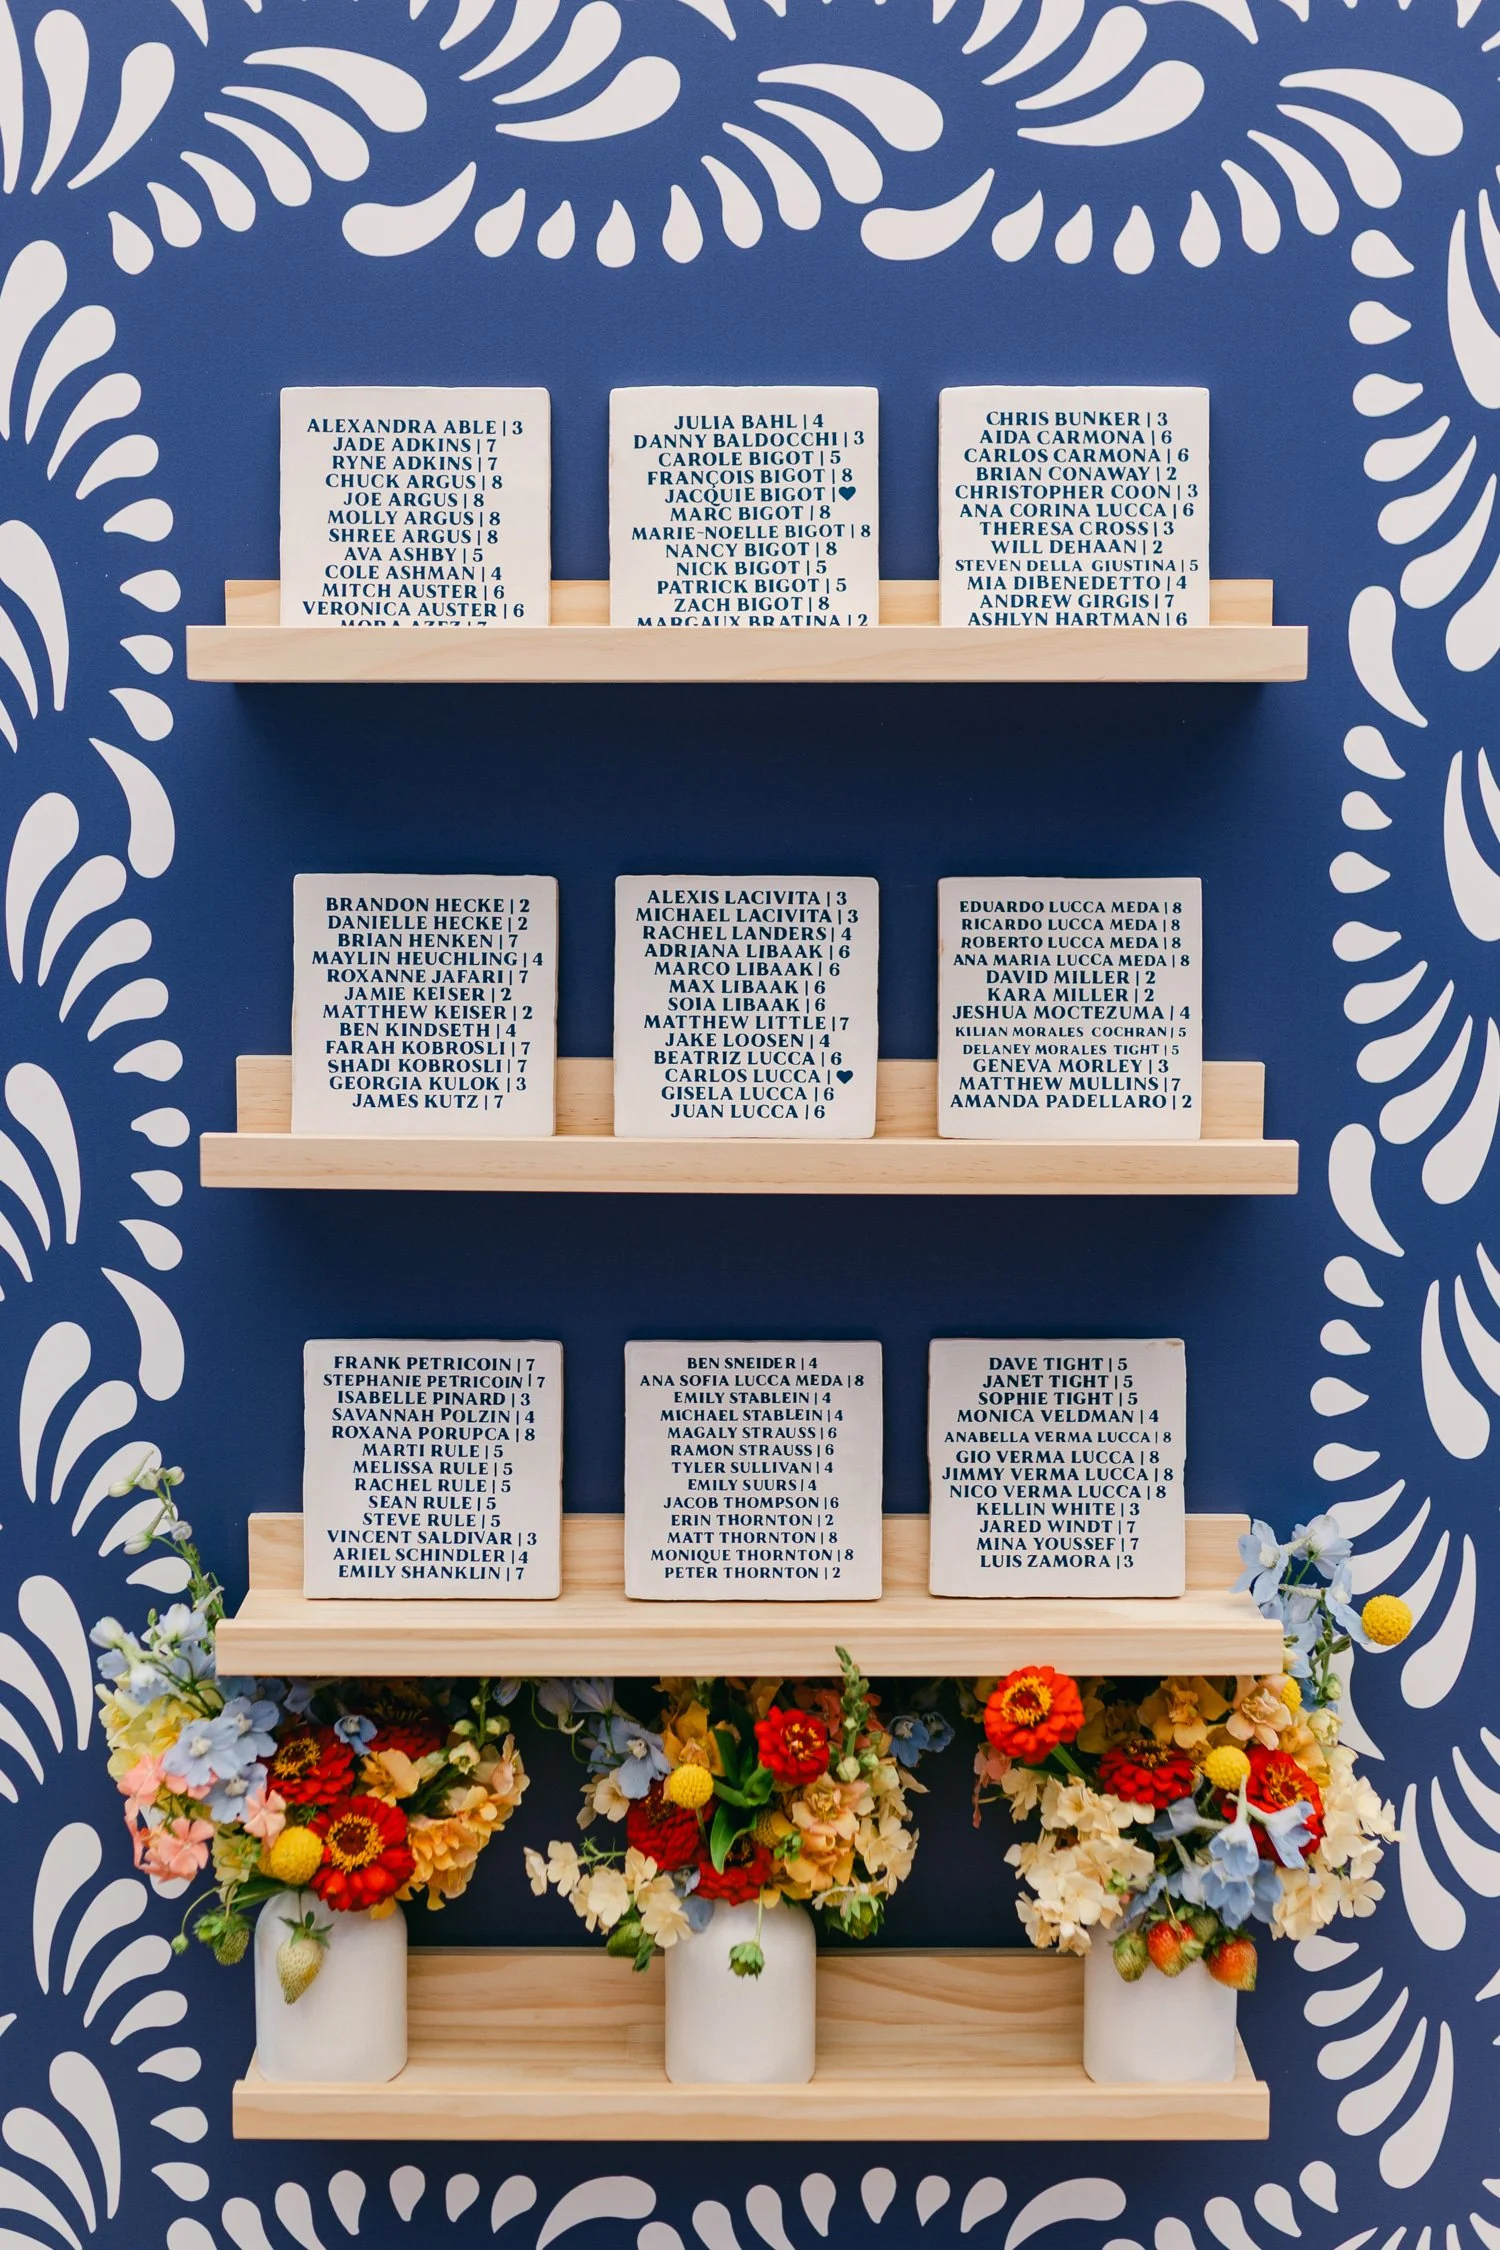 ALEXANDRA ABLE | 3
JADE ADKINS | 7
RYNE ADKINS | 7
CHUCK ARGUS | 8
JOE ARGUS | 8
MOLLY ARGUS | 8
SHREE ARGUS | 8
AVA ASHBY | 5
COLE ASHMAN | 4
MITCH AUSTER | 6
VERONICA AUSTER | 6
MORA AZEZ | 7
JULIA BAHL | 4
DANNY BALDOCCHI | 3
CAROLE BIGOT | 5
FRANÇOIS BIGOT | 8
JACQUIE BIGOT | ♥
MARC BIGOT | 8
MARIE-NOELLE BIGOT | 8
NANCY BIGOT | 8
NICK BIGOT | 5
PATRICK BIGOT | 5
ZACH BIGOT | 8
MARGAUX BRATINA | 2
CHRIS BUNKER | 3
AIDA CARMONA | 6
CARLOS CARMONA | 6
BRIAN CONAWAY | 2
CHRISTOPHER COON | 3
ANA CORINA LUCCA | 6
THERESA CROSS | 3
WILL DEHAAN | 2
STEVEN DELLA GIUSTINA | 5
MIA DIBENEDETTO | 4
ANDREW GIRGIS | 7
ASHLYN HARTMAN | 6
BRANDON HECKE | 2
DANIELLE HECKE | 2
BRIAN HENKEN | 7
MAYLIN HEUCHLING | 4
ROXANNE JAFARI | 7
JAMIE KEISER | 2
MATTHEW KEISER | 2
BEN KINDSETH | 4
FARAH KOBROSLI | 7
SHADI KOBROSLI | 7
GEORGIA KULOK | 3
JAMES KUTZ | 7
ALEXIS LACIVITA | 3
MICHAEL LACIVITA | 3
RACHEL LANDERS | 4
ADRIANA LIBAAK | 6
MARCO LIBAAK | 6
MAX LIBAAK | 6
SOIA LIBAAK | 6
MATTHEW LITTLE | 7
JAKE LOOSEN | 4
BEATRIZ LUCCA | 6
CARLOS LUCCA | ♥
GISELA LUCCA | 6
JUAN LUCCA | 6
EDUARDO LUCCA MEDA | 8
RICARDO LUCCA MEDA | 8
ROBERTO LUCCA MEDA | 8
ANA MARIA LUCCA MEDA | 8
DAVID MILLER | 2
KARA MILLER | 2
JESHUA MOCTEZUMA | 4
KILIAN MORALES COCHRAN | 5
DELANEY MORALES TIGHT | 5
GENEVA MORLEY | 3
MATTHEW MULLINS | 7
AMANDA PADELLARO | 2
FRANK PETRICOIN | 7
STEPHANIE PETRICOIN | 7
ISABELLE PINARD | 3
SAVANNAH POLZIN | 4
ROXANA PORUPCA | 8
MARTI RULE | 5
MELISSA RULE | 5
RACHEL RULE | 5
SEAN RULE | 5
STEVE RULE | 5
VINCENT SALDIVAR | 3
ARIEL SCHINDLER | 4
EMILY SHANKLIN | 7
BEN SNEIDER | 4
ANA SOFIA LUCCA MEDA | 8
EMILY STABLEIN | 4
MICHAEL STABLEIN | 4
MAGALY STRAUSS | 6
RAMON STRAUSS | 6
TYLER SULLIVAN | 4
EMILY SUURS | 4
JACOB THOMPSON | 6
ERIN THORNTON | 2
MATT THORNTON | 8
MONIQUE THORNTON | 8
PETER THORNTON | 2
DAVE TIGHT | 5
JANET TIGHT | 5
SOPHIE TIGHT | 5
MONICA VELDMAN | 4
ANABELLA VERMA LUCCA | 8
GIO VERMA LUCCA | 8
JIMMY VERMA LUCCA | 8
NICO VERMA LUCCA | 8
KELLIN WHITE | 3
JARED WINDT | 7
MINA YOUSSEF | 7
LUIS ZAMORA | 3